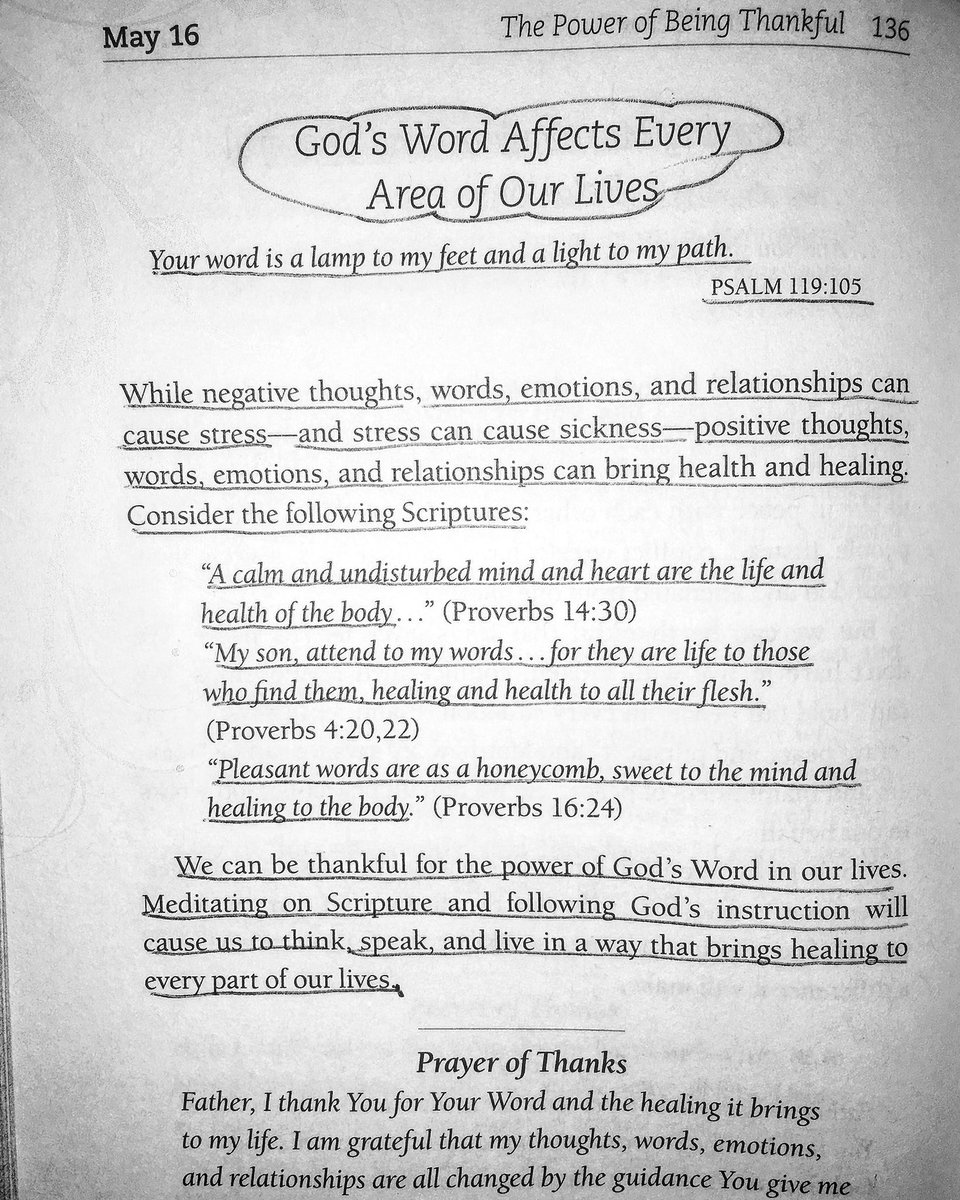 May 16
The Power of Being Thankful 136
God's Word Affects Every
Area of Our Lives
Your word is a lamp to my feet and a light to my path.
PSALM 119:105
While negative thoughts, words, emotions, and relationships can
cause stress—and stress can cause sickness—positive thoughts,
words, emotions, and relationships can bring health and healing.
Consider the following Scriptures:
“A calm and undisturbed mind and heart are the life and
health of the body…” (Proverbs 14:30)
“My son, attend to my words…for they are life to those
who find them, healing and health to all their flesh.”
(Proverbs 4:20,22)
“Pleasant words are as a honeycomb, sweet to the mind and
healing to the body.” (Proverbs 16:24)
We can be thankful for the power of God's Word in our lives.
Meditating on Scripture and following God's instruction will
cause us to think, speak, and live in a way that brings healing to
every part of our lives.
Prayer of Thanks
Father, I thank You for Your Word and the healing it brings
to my life. I am grateful that my thoughts, words, emotions,
and relationships are all changed by the guidance You give me